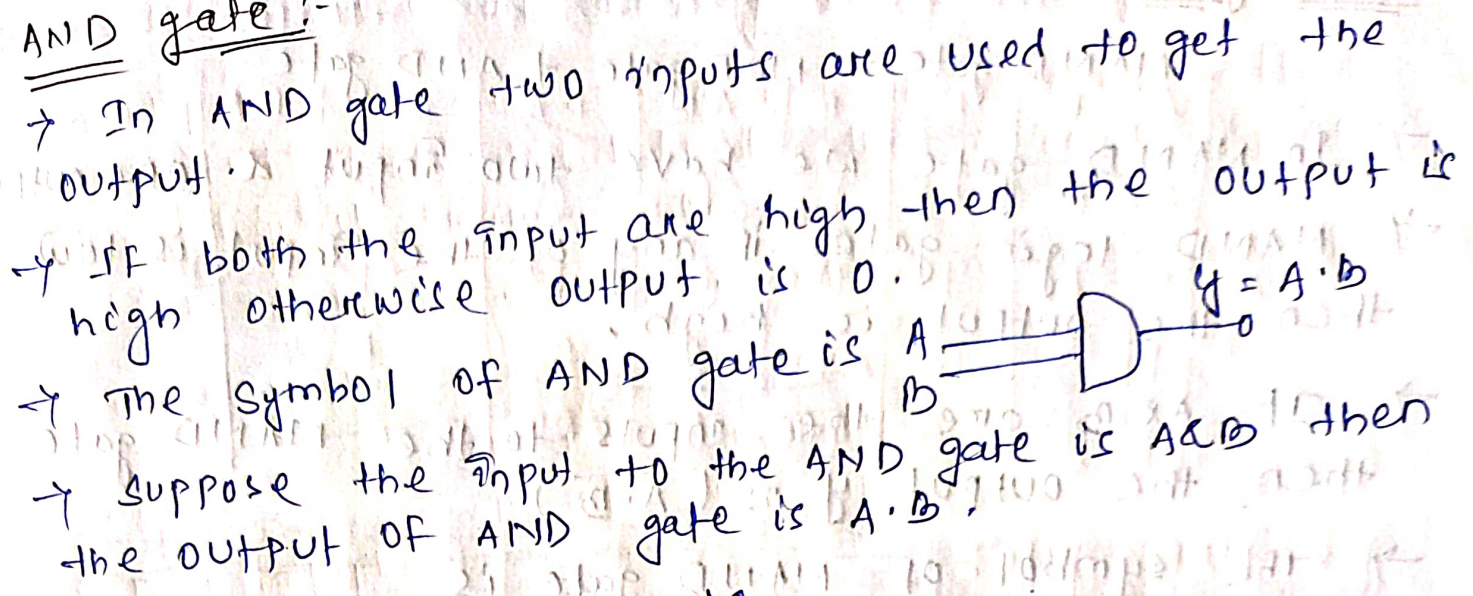 AND gate :-
→ In AND gate two inputs are used to get the
output.
→ If both the input are high then the output is
high otherwise output is 0.
y = A·B
→ The symbol of AND gate is A
B
→ suppose the input to the AND gate is A&B then
the output of AND gate is A·B.